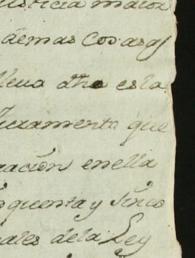 justicia maior
demas cosas q
lleva dho esta
Juramento que
racion enella
nquenta y sinco
eales dela Ley